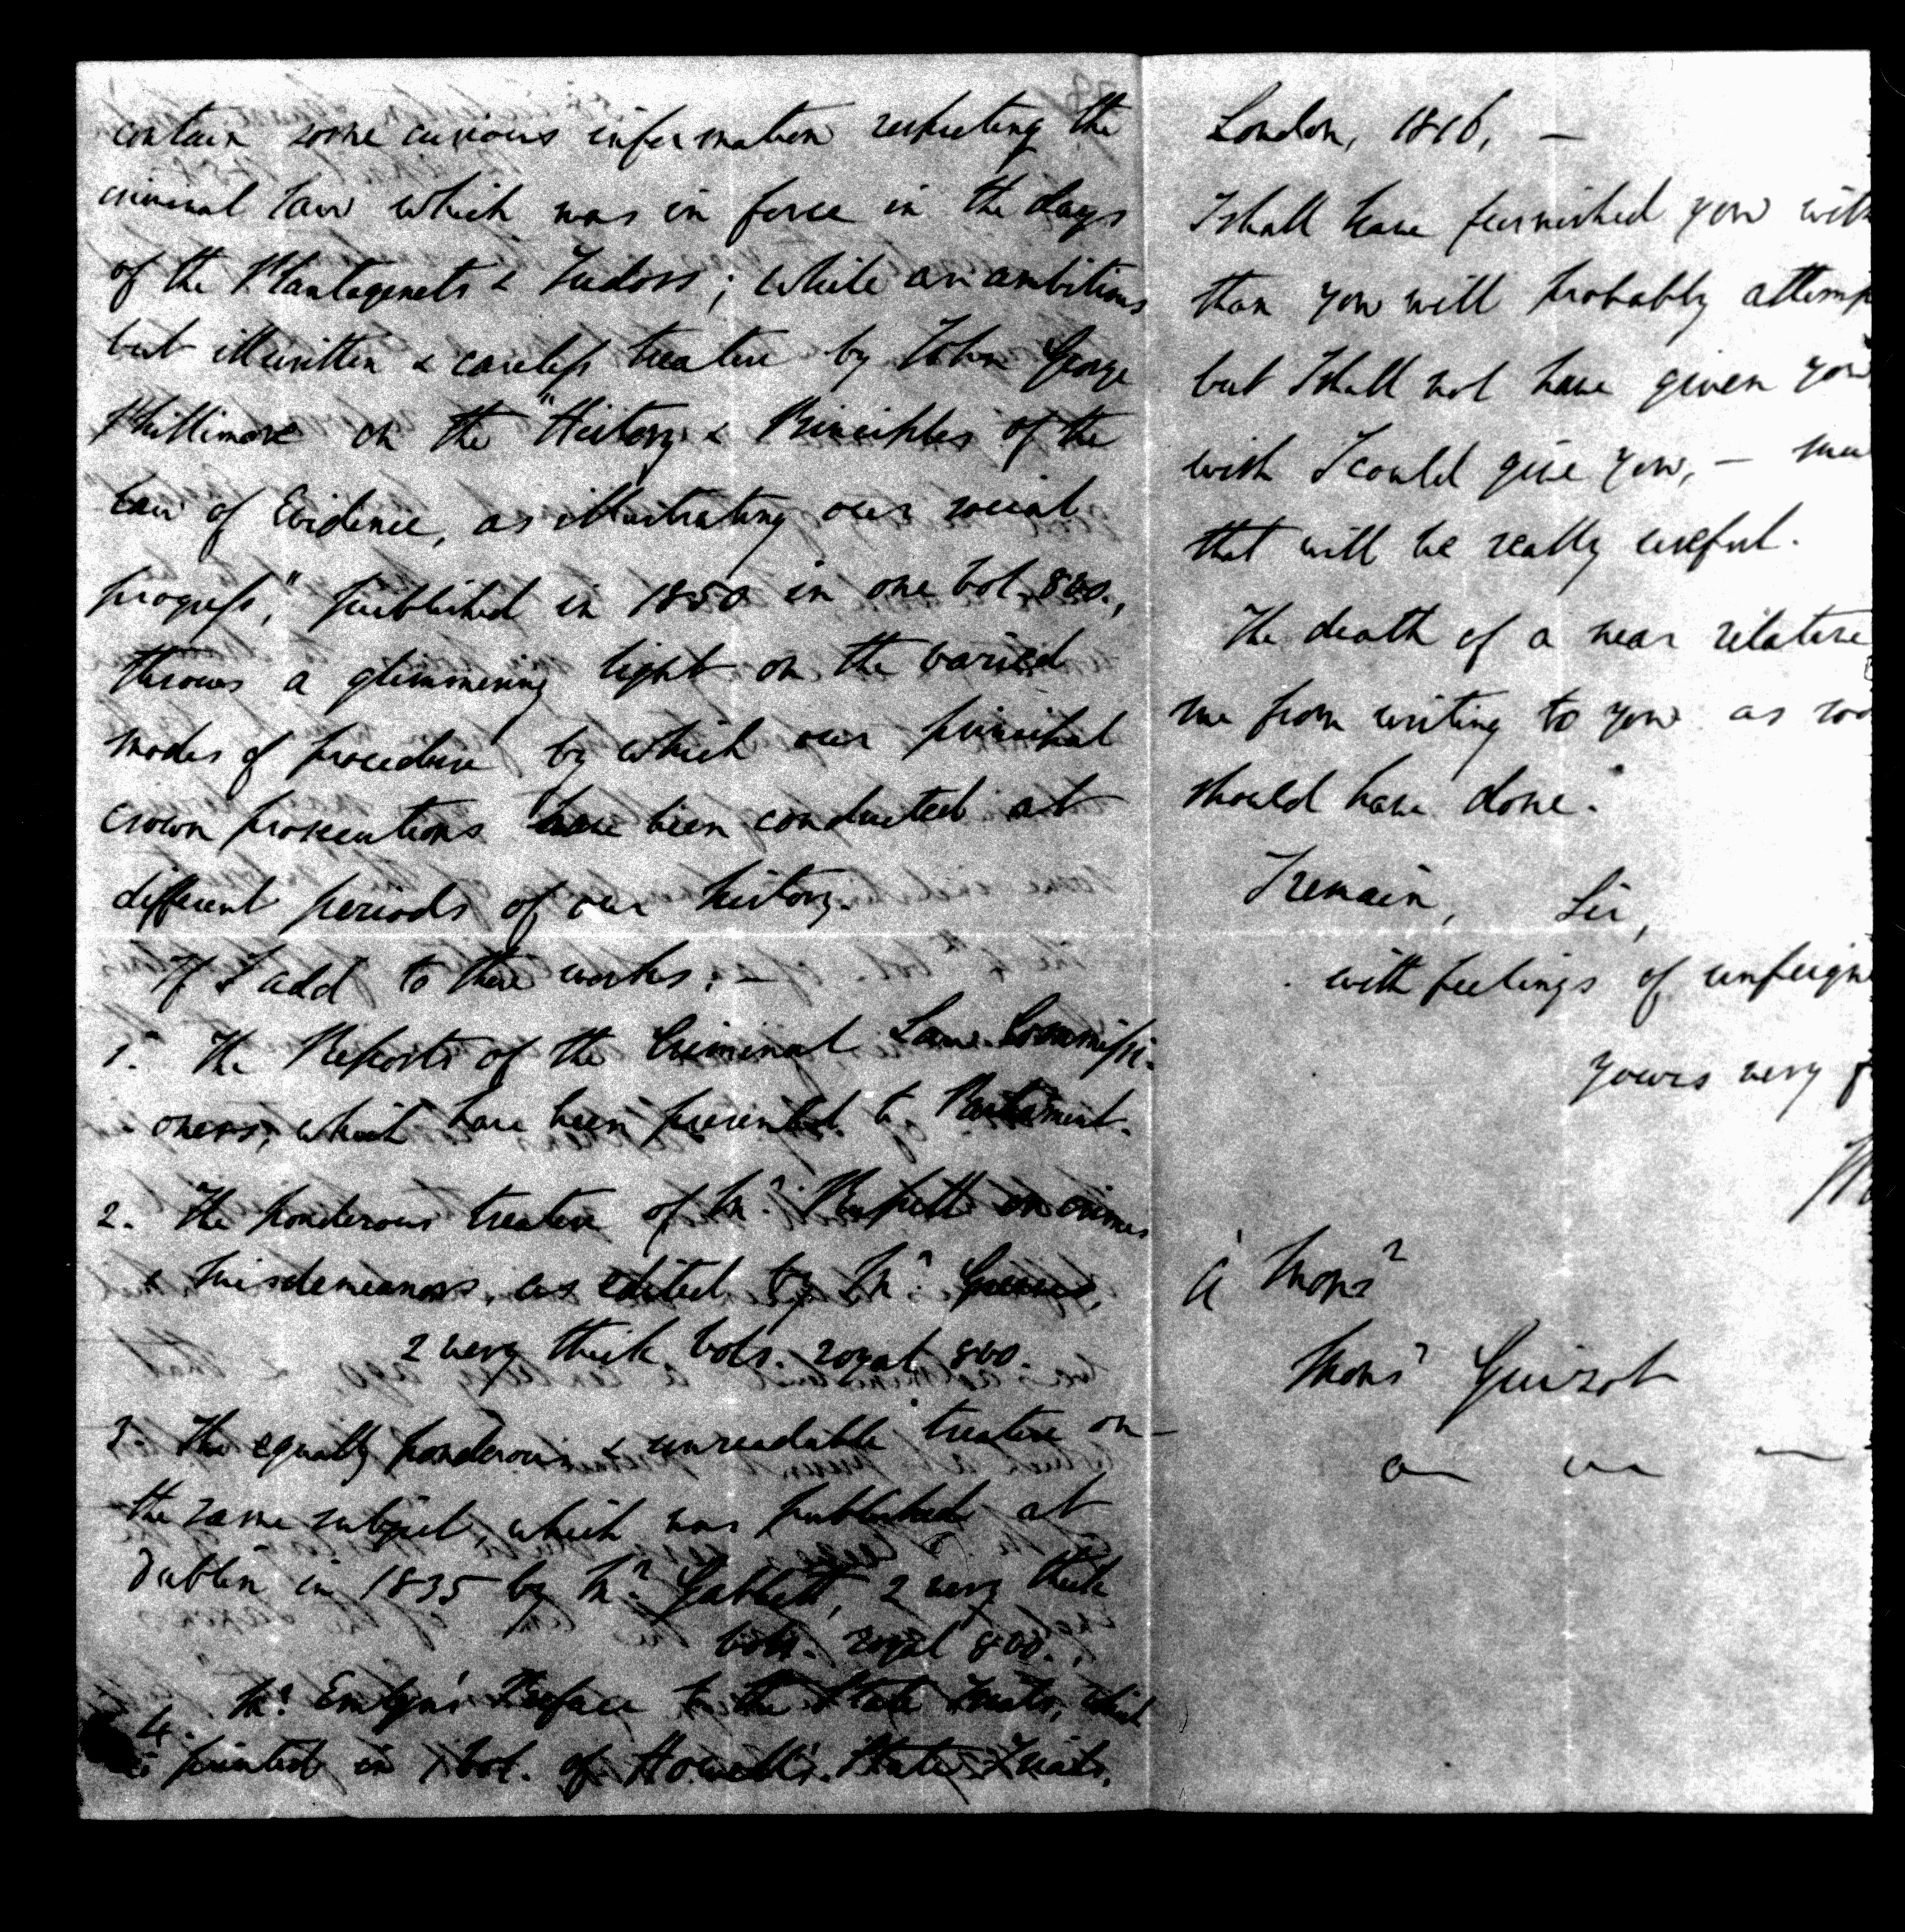 contain some curious information respecting the
criminal law which was in force in the days
of the Plantagenets & Tudors; while an ambitious
but illwritten & careless treatise by John George
Phillimore on the "History & Principles of the
Law of Evidence, as illustrating our social
progress," published in 1850 in one vol. 8vo.,
throws a glimmering light on the varied
modes of procedure by which our principal
crown prosecutions have been conducted at
different periods of our history.
If I add to these works: —
1. The Reports of the Criminal Law Commissi-
oners, which have been presented to Parliament.
2. The ponderous treatise of Mr. Russell on crimes
& misdemeanors, as edited by Mr. Greaves,
2 very thick vols. royal 8vo.
3. The equally ponderous & unreadable treatise on
the same subject, which was published at
Dublin in 1835 by Mr. Gabbett, 2 very thick
vols. royal 8vo.
4. Mr. Emlyn's Preface to the State Trials, which
is printed in 1 vol. of Howell's State Trials,
London, 1816, —
I shall have furnished you with
than you will probably attemp
but I shall not have given you
wish I could give you, —
that will be really useful.
The death of a near relative
me from writing to you as soo
should have done.
I remain, Sir,
with feelings of unfeign
yours very
à Monsr
Monsr Guizot